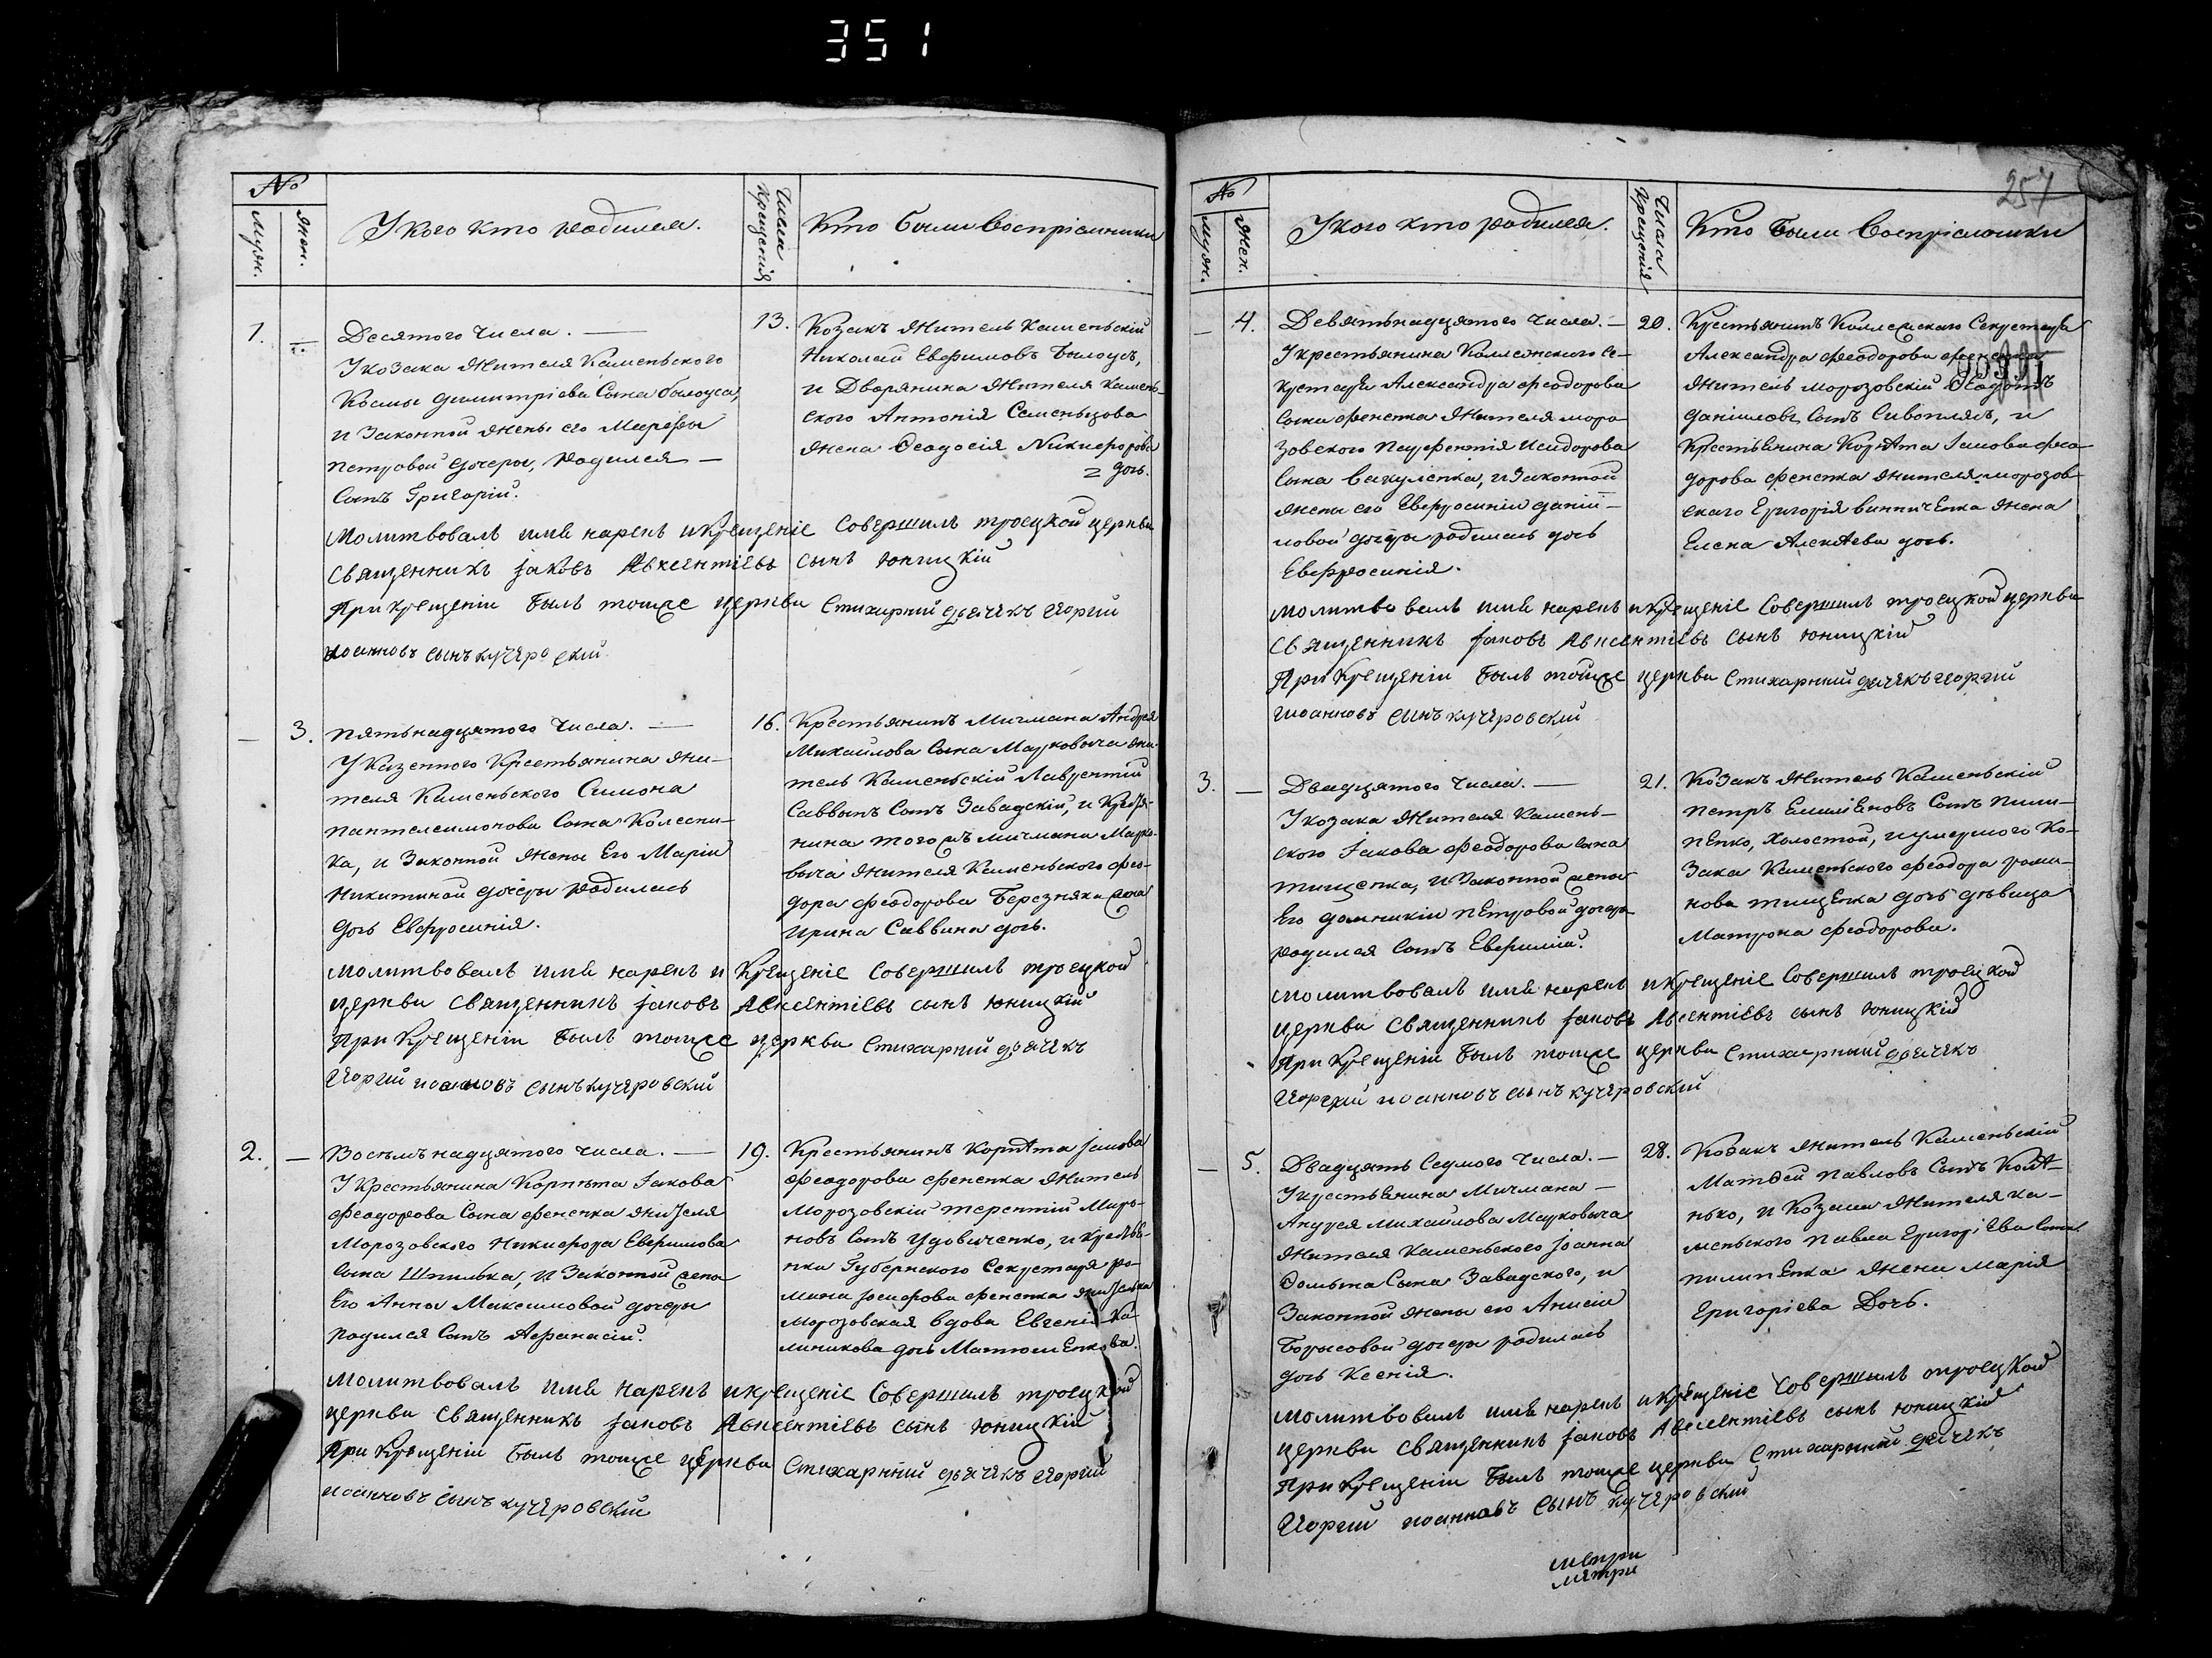 351
№
Мужн.
Женск.
У кого кто родился.
Числа Крещенія
Кто были Воспріемники
1.
Десятого числа. —
У козака жителя Каменьского
Космы Димитріева сына Билоуса,
и Законной жены его Марѳы
Петровой дочеры, родился —
сынъ Григорій.
13.
Козакъ житель Каменьскій
Николай Евфимовъ Билоусъ,
и Дворянина жителя камень-
ского Антонія Саменьцова
жена Ѳеодосія Никифорова
дочь.
Молитвовалъ имя нарекъ и крещеніе совершилъ троецкой церкви
священникъ Іаковъ Авксентіевъ сынъ Юницкій
При крещеніи былъ тоиже церкви стихарній дьячекъ Георгій
иоанновъ сынъ кучеровский
— 3.
Пятьнадцятого числа. —
У Казенного Крестьянина жи-
теля Каменьского Симона
Пантелеимонова сына Колесни-
ка, и Законной жены его Маріи
Никитиной дочеры родилась
дочь Евфросинія.
16.
Крестьянинъ Мичмана Андрея
Михайлова сына Марковича жи-
тель Каменьскій Лаврентій
Саввынъ сынъ Завадскій, и Крестья-
нина того жъ мичмана Марко-
выча жителя Каменьского Фео-
дора Феодорова Березняка жена
Ирина Саввина дочь.
молитвовалъ имя нарекъ и крещеніе совершилъ троецкой
церкви священникъ Іаковъ Авксентіевъ сынъ Юницкій
При крещеніи былъ тоиже церкви стихарній дьячекъ
Георгий иоанновъ сынъ кучеровский
2. —
Восѣмънадцятого числа. —
У Крестьянина Корнѣта Іакова
Феодорова сына Фененка жителя
Морозовского Никифора Евфимова
сына Шпилька, и Законной жены
Его Анны Максимовой дочеры
родился сынъ Афанасій.
19.
Крестьянинъ Корнѣта Іакова
Феодорова Фененка житель
Морозовскій Терентій Миро-
новъ сынъ Удовиченко, и Крестья-
нки Губернского Секретаря Ро-
мана Іосифова Фененка жителька
Морозовская вдова Евгенія Ка-
линикова дочь Матюшенкова.
молитвовалъ имя нарекъ и крещеніе совершилъ троецкой
церкви священникъ Іаковъ Авксентіевъ сынъ Юницкій
При крещеніи былъ тоиже церкви стихарній дьячекъ Георгий
иоанновъ сынъ кучеровский
257
№
Мужн.
Женск.
У кого кто родился.
Числа Крещенія
Кто были Воспріемники
— 4.
Девятьнадцятого числа. —
У крестьянина Коллежского Се-
кретаря Александра Феодорова
сына Фененка жителя моро-
зовского Парфентія Исидорова
сына Вакуленка, и Законной
жены его Евфросиніи Даніи-
ловой дочеры родилась дочь
Евфросинія.
20.
Крестьянинъ Коллежскаго Секретаря
Александра Феодорова Фененка
житель морозовскій Ѳеодотъ
Даніиловъ сынъ Сивопляс, и
Крестьянина Корнѣта Іакова Фео-
дорова Фененка жителя морозов-
скаго Григорія винниченка жена
Елена Алексѣева дочь.
молитвовалъ имя нарекъ и крещеніе совершилъ троецкой церкви
священникъ Іаковъ Авксентіевъ сынъ Юницкій
При крещеніи былъ тойже церкви стихарний дячекъ Георгий
иоанновъ сынъ кучеровский
3. —
Двадцятого числа. —
У козака жителя Камень-
ского Іакова Феодорова сына
Тищенка, и Законной жены
Его Домникіи Петровой дочеры
родился сынъ Евфимій.
21.
Козакъ житель Каменьскій
Петръ Емиліеновъ сынъ Пили-
пенко, холостой, и умершого Ко-
зака Каменьского Феодора Рома-
нова тищенка дочь дѣвица
Матрона Феодорова.
молитвовалъ имя нарекъ и крещеніе совершилъ троецкой
церкви священникъ Іаковъ Авксентіевъ сынъ Юницкій
При крещеніи былъ тоиже церкви стихарный дьячекъ
Георгий иоанновъ сынъ кучеровский
— 5.
Двадцять Седмого числа. —
У крестьянина Мичмана —
Андрея Михайлова Марковича
жителя Каменьского Іоанна
Ѳомына сына Завадского, и
Законной жены его Анисіи
Борысовой дочеры родилась
дочь Ксенія.
28.
Козакъ житель Каменьскій
Матѳей Павловъ сынъ
нько, и Козака жителя ка-
меньского Павла Григоріева сына
пилипенка жена Марія
Григоріева Дочь.
молитвовалъ имя нарекъ и крещеніе совершилъ троецкой
церкви священникъ Іаковъ Авксентіевъ сынъ Юницкій
При крещеніи былъ тоиже церкви стихарный дячекъ
Георгий иоанновъ сынъ кучеровский
метри
метри